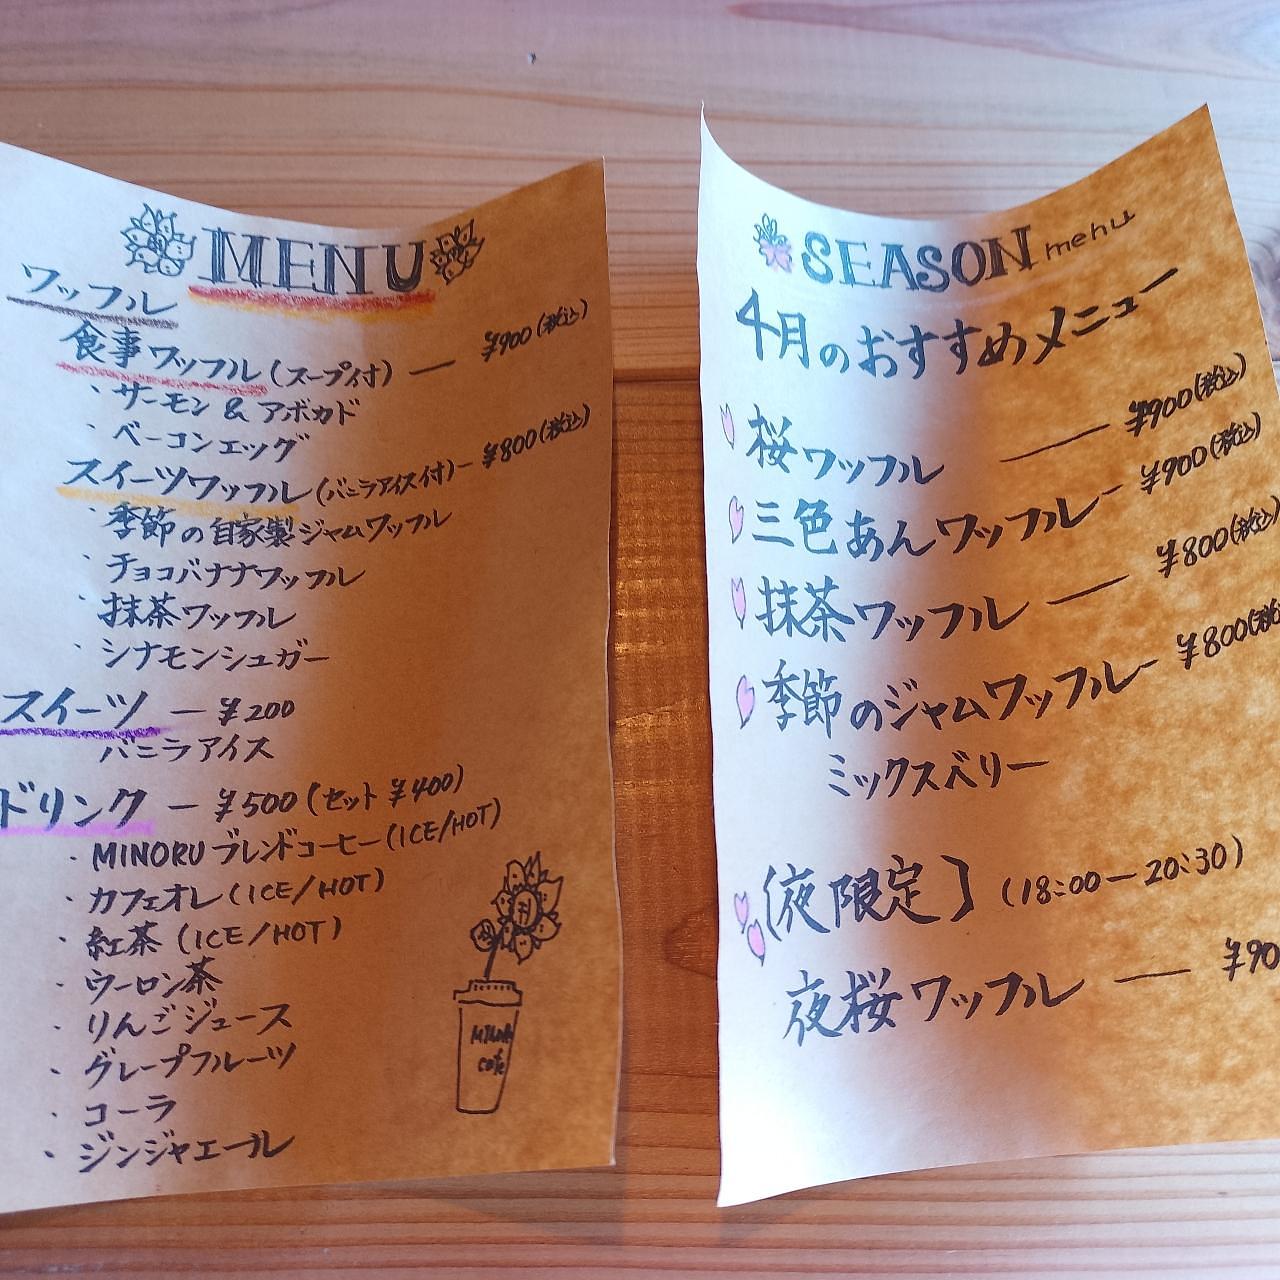 MENU
ワッフル
食事ワッフル(スープ付) — ¥900(税込)
・サーモン & アボカド
・ベーコンエッグ
スイーツワッフル(バニラアイス付) — ¥800(税込)
・季節の自家製ジャムワッフル
・チョコバナナワッフル
・抹茶ワッフル
・シナモンシュガー
スイーツ — ¥200
バニラアイス
ドリンク — ¥500(セット ¥400)
・MINORUブレンドコーヒー(ICE/HOT)
・カフェオレ(ICE/HOT)
・紅茶(ICE/HOT)
・ウーロン茶
・りんごジュース
・グレープフルーツ
・コーラ
・ジンジャエール
cafe
SEASON menu
4月のおすすめメニュー
桜ワッフル — ¥900(税込)
三色あんワッフル — ¥900(税込)
抹茶ワッフル — ¥800(税込)
季節のジャムワッフル — ¥800(税込
ミックスベリー
(夜限定](18:00—20:30)
夜桜ワッフル — ¥90